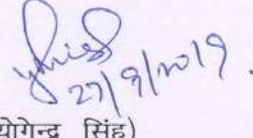 27/9/2019.
(योगेन्द्र सिंह)